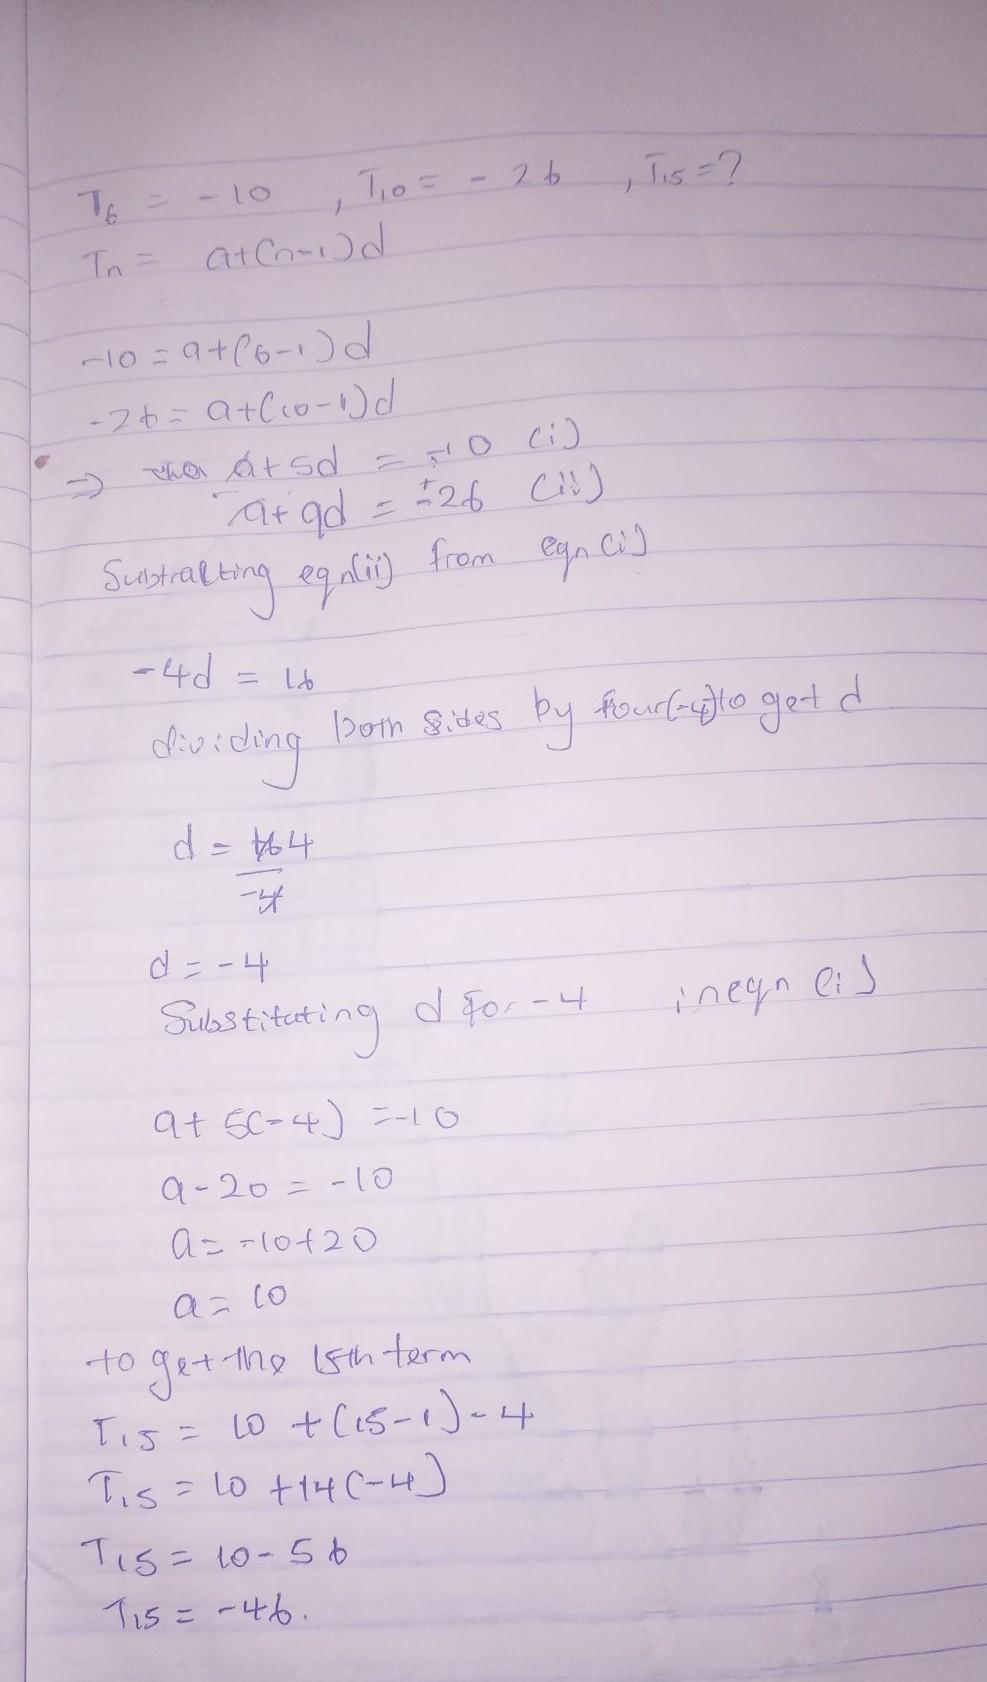 T6 = -10 , T10 = - 26 , T15 = ?
Tn = a+(n-1)d
-10 = a+(6-1)d
-26 = a+(10-1)d
⇒ a+5d = -10 (i)
- a+9d = -26 (ii)
Subtracting eqn(ii) from eqn (i)
-4d = 16
dividing both sides by four(-4)to get d
d = 16 4
-4
d = -4
Substituting d for -4 in eqn (i)
a+ 5(-4) = -10
a-20 = -10
a = -10+20
a = 10
to get the 15th term
T15 = 10 + (15-1) - 4
T15 = 10 +14 (-4)
T15 = 10 - 56
T15 = -46.